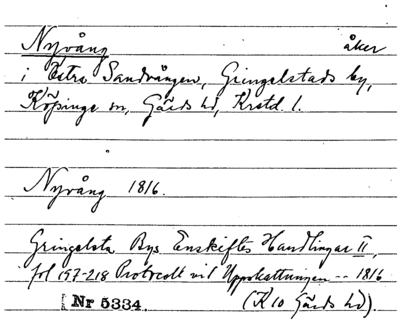 Nyvång åker
i Östra Sandvången, Gringelstads by,
Köpinge sn, Gärds hd, Krstd. l.
Nyvång 1816.
Gringelsta Bys Enskiftes Handlingar II,
fol 157-218 Protocoll vid Uppskattningen -- 1816
Nr 5334. (K 10 Gärds hd).